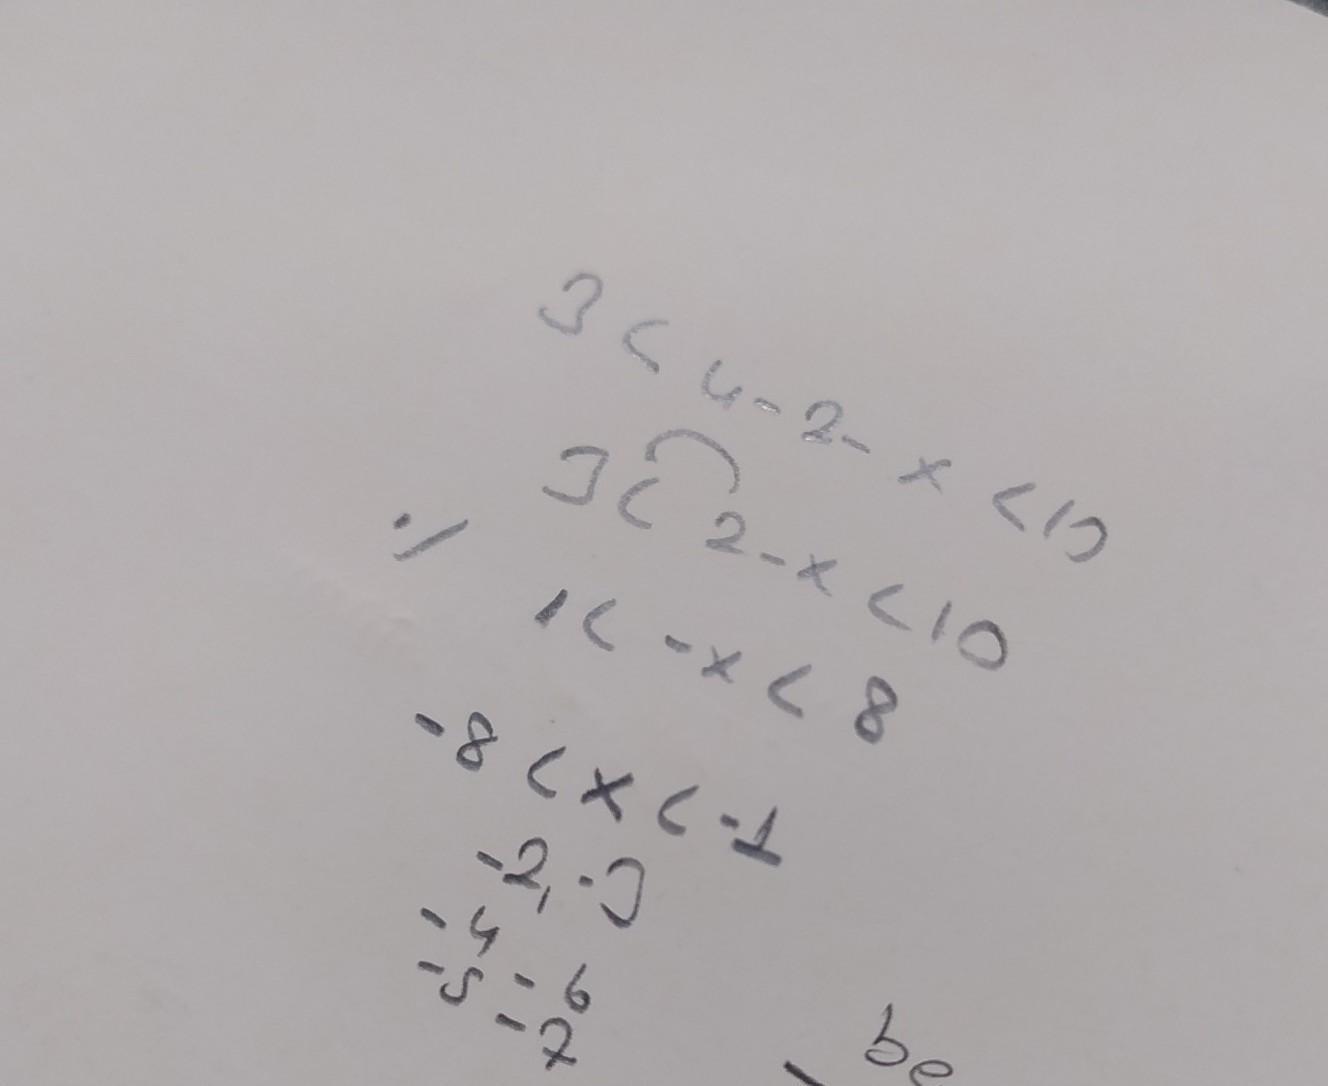 3 < 4 - 2 - x < 10
3 < 2 - x < 10
1 < -x < 8
-8 < x < -1
-2, -3
-4
-5 - 6
- 7
be